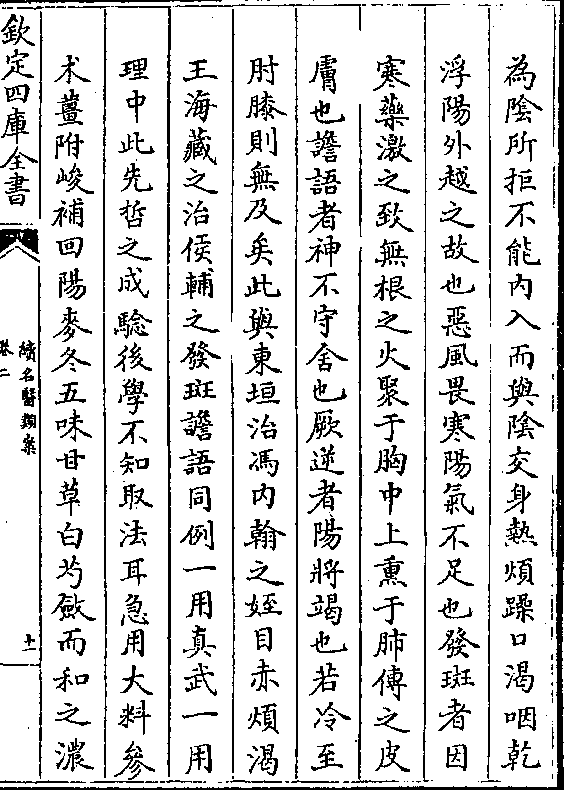 為陰所拒不能内入而與陰交身熱煩躁口渴咽乾
浮陽外越之故也惡風畏寒陽氣不足也發斑者因
寒藥激之致無根之火聚于胸中上熏于肺傳之皮
膚也譫語者神不守舍也厥逆者陽將竭也若冷至
肘膝則無及矣此與東垣治馮内翰之姪目赤煩渴
王海藏之治侯輔之發斑譫語同例一用真武一用
理中此先哲之成驗後學不知取法耳急用大料參
术薑附峻補回陽麥冬五味甘草白芍斂而和之濃
欽定四庫全書
續名醫類案
卷二
十一